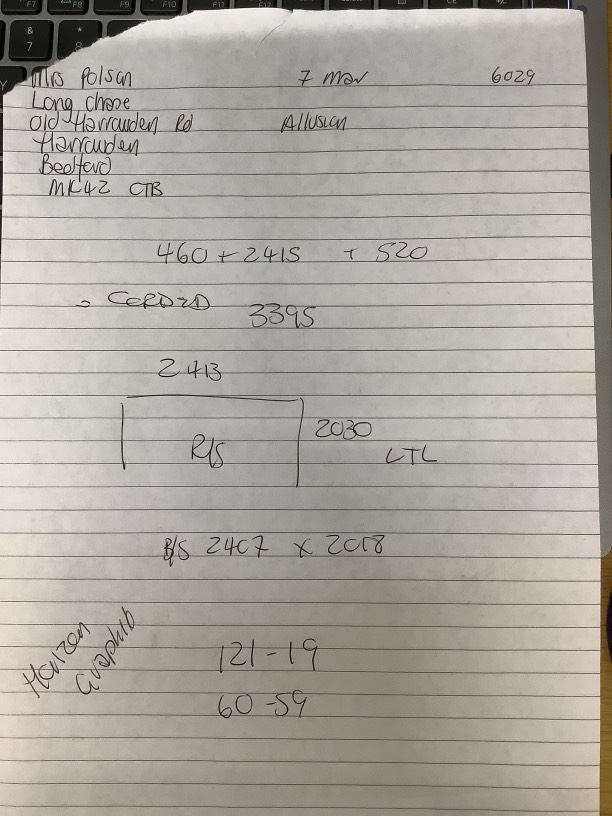 Mrs Polson 7 Mar 6029
Long chase
Old Harrowden Rd Allusion
Harrowden
Bedford
MK42 0TB
460 + 2415 + 520
= 3395
2413
R/S 2030 LTL
B/S 2407 x 2018
Horizon
Graphite
121-19
60-59